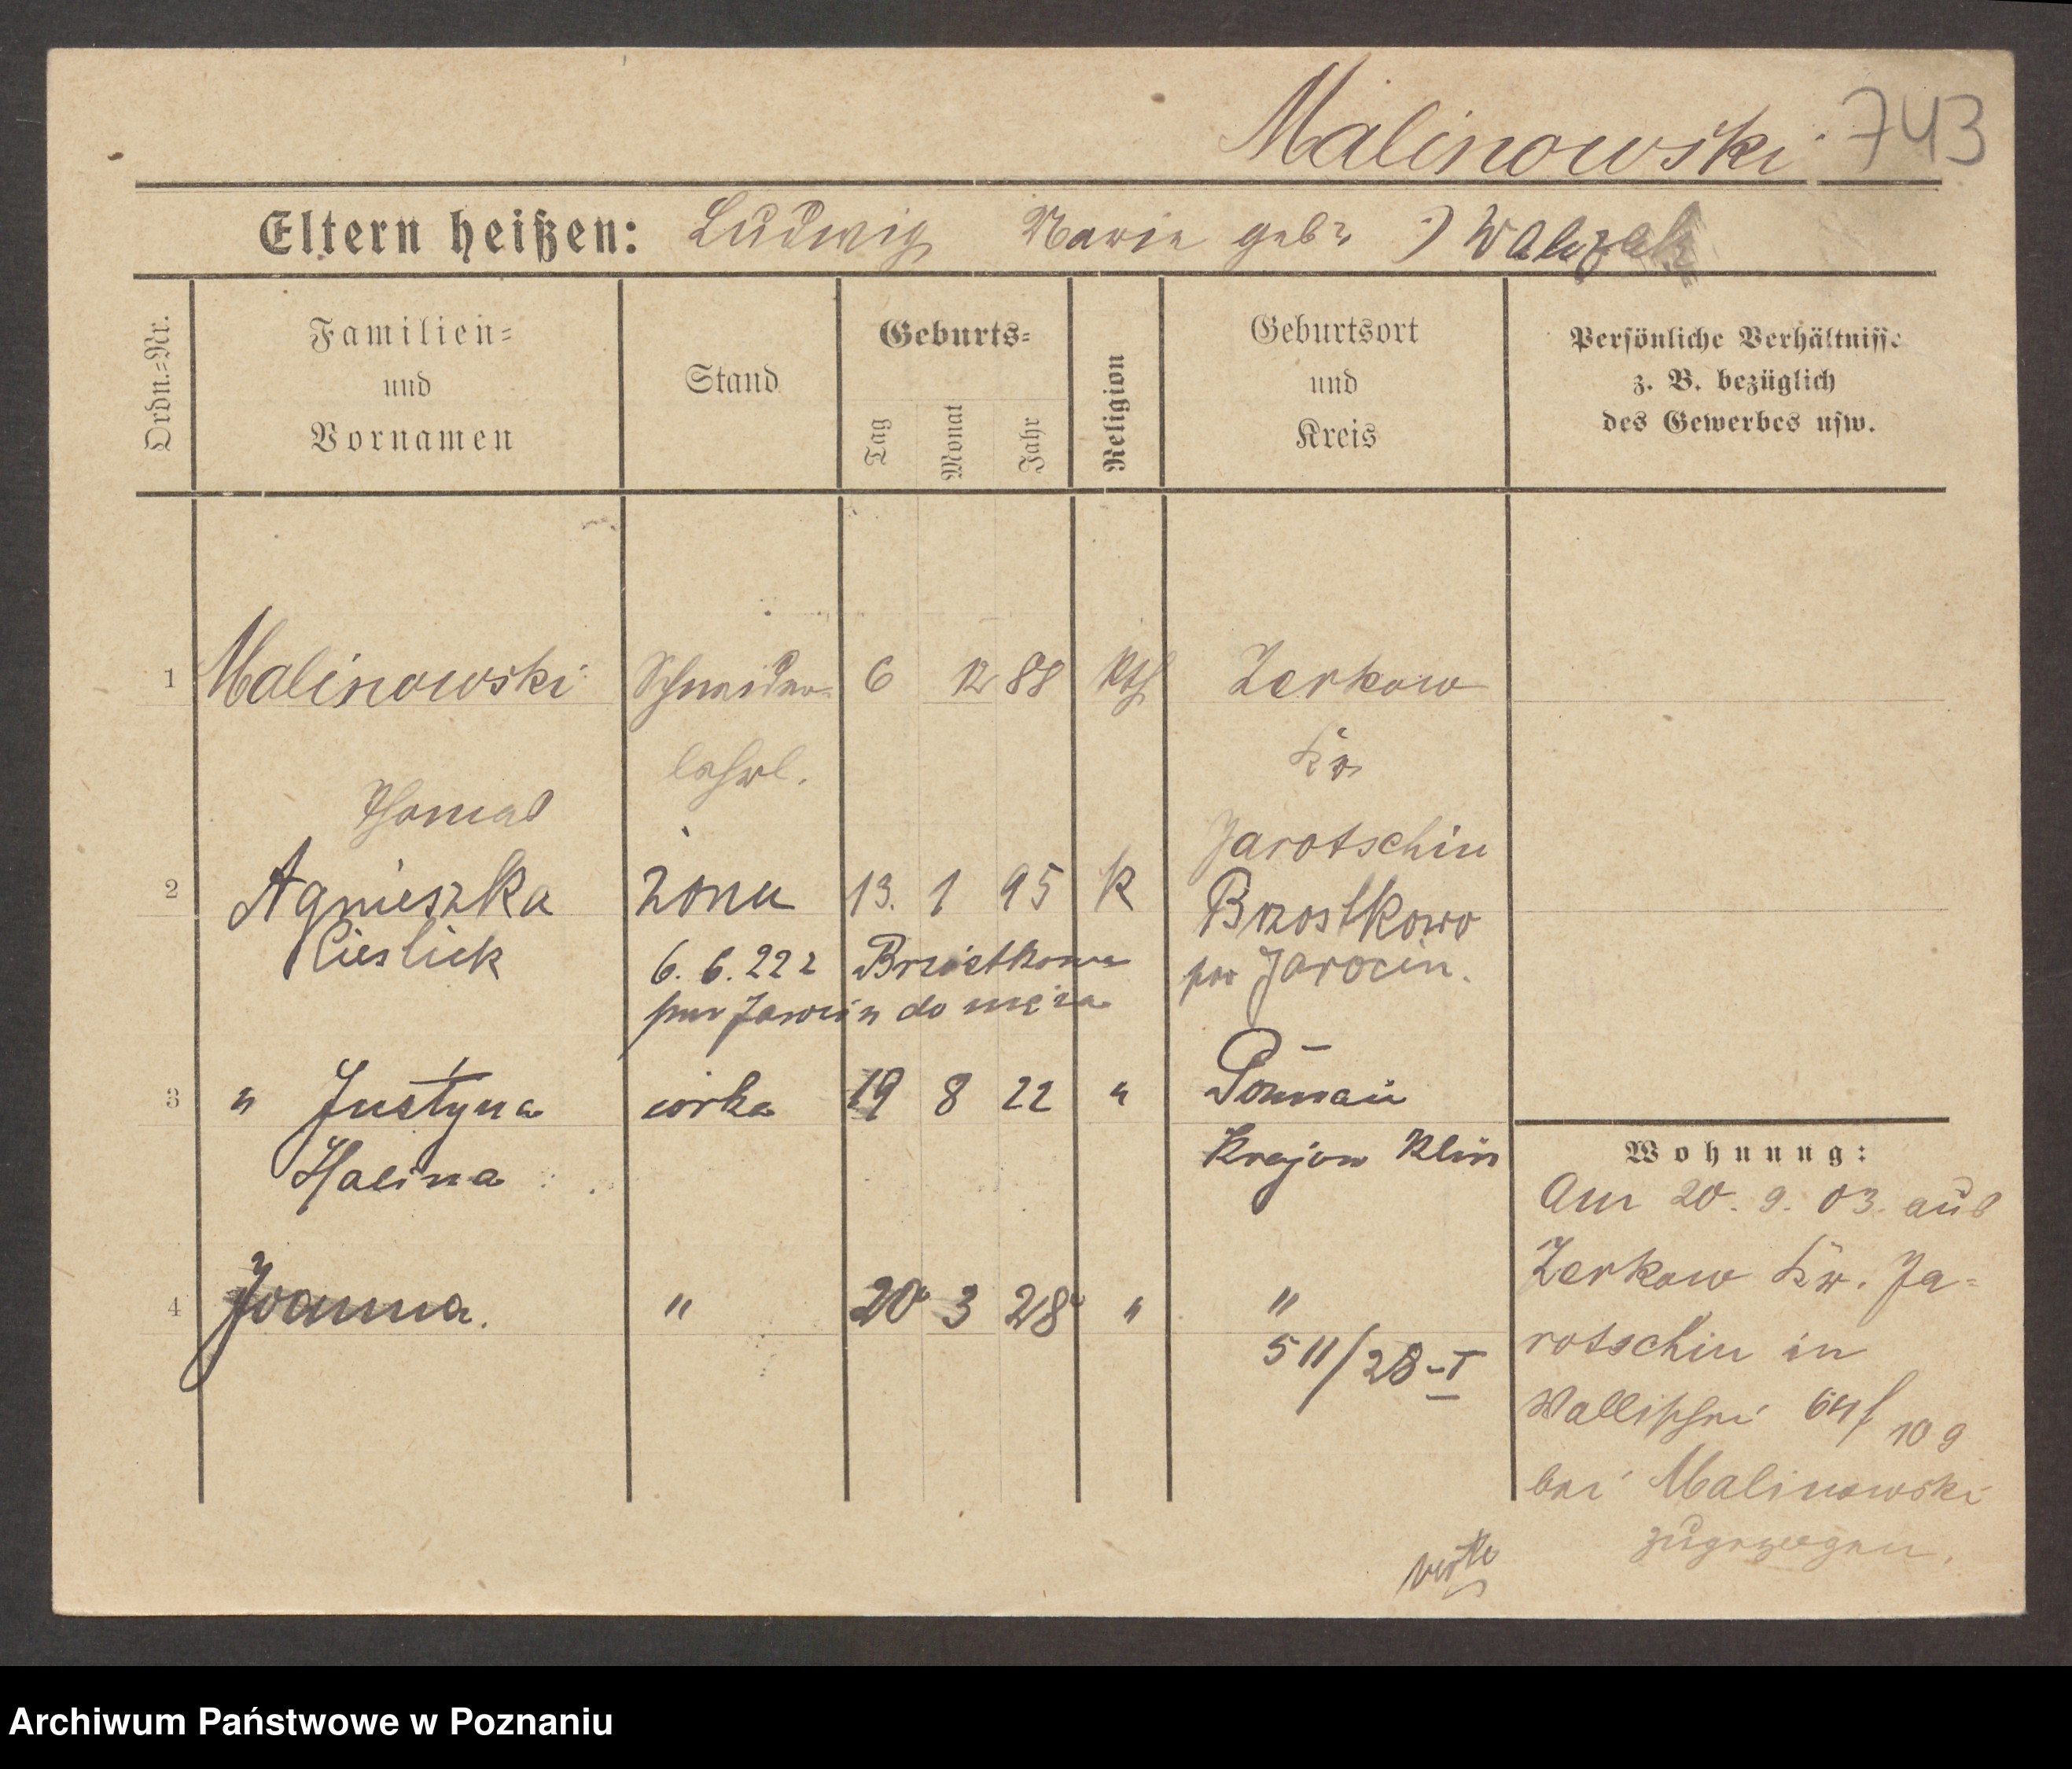 Malinowski 743
Eltern heißen: Ludwig Marie geb.
Ordn.=Nr.
Familien=
und
Vornamen
Stand
Geburts=
Tag
Monat
Jahr
Religion
Geburtsort
und
Kreis
Persönliche Verhältnisse
z. B. bezüglich
des Gewerbes usw.
1 Malinowski Schneider- 6 12 88 kth Zerkow
Thomas lehrl. Kr
Jarotschin
2 Agnieszka żona 13. 1 95 k Brzostkowo
Cieslick pow Jarocin.
6. 6. 22 z Brzostkowa
pow Jarocin do męża
3 " Justyna córka 19 8 22 " Poznań
Halina
4 Joanna. " 20 3 28 " "
511/28-I
Wohnung:
Am 20. 9. 03. aus
Zerkow Kr. Ja-
rotschin in
Wallischei 64/ 10 g
bei Malinowski
zugezogen.
verte
Archiwum Państwowe w Poznaniu